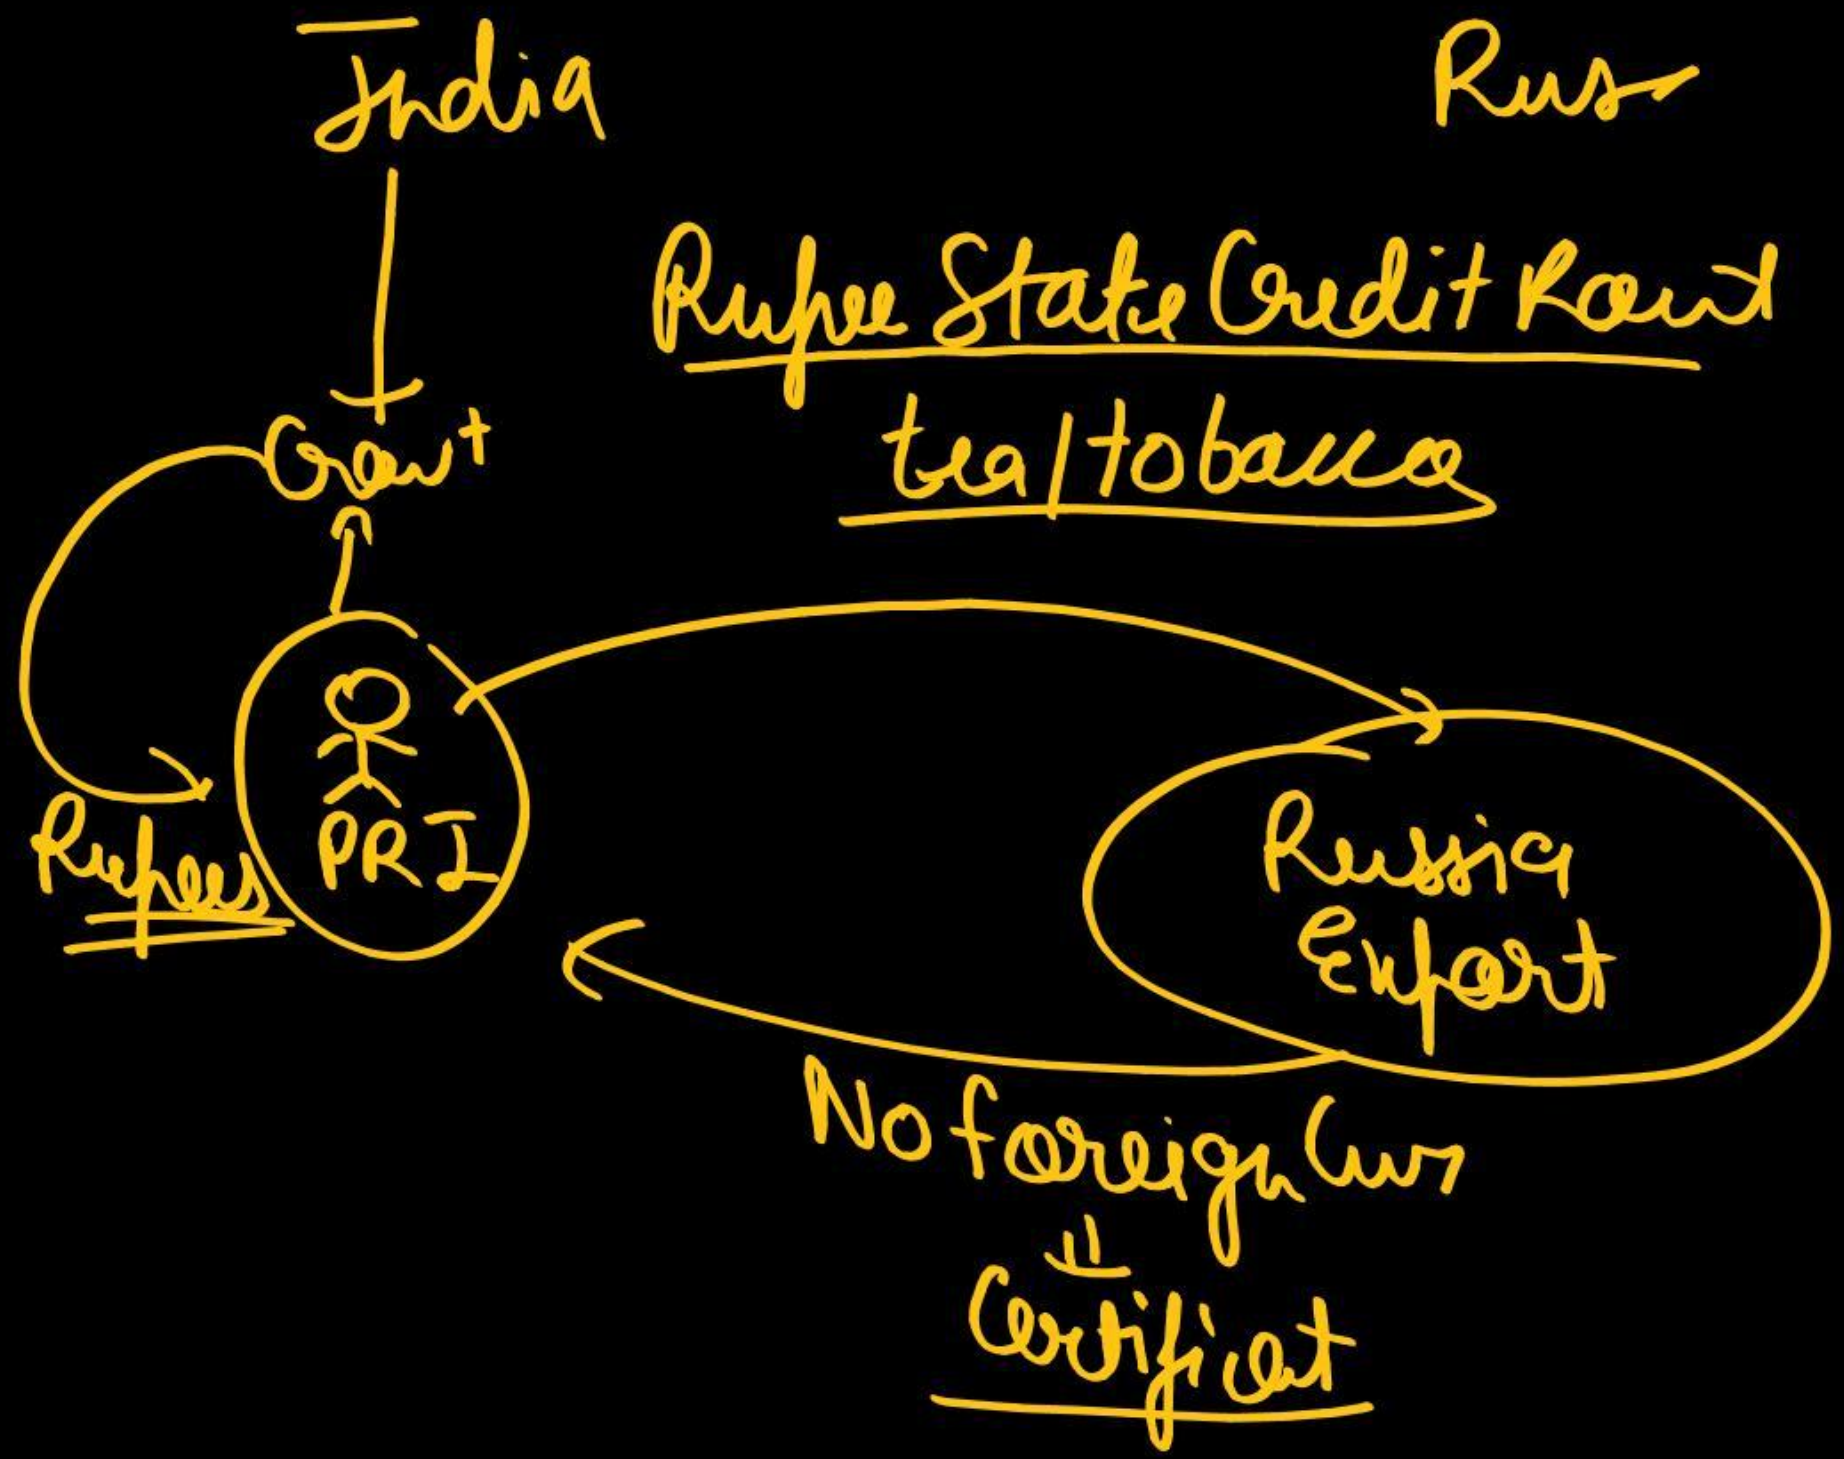 India
Rus
Rupee State Credit Rout
tea/tobacco
Govt
PRI
Rupees
Russia
Export
No foreign Curr
Certificat